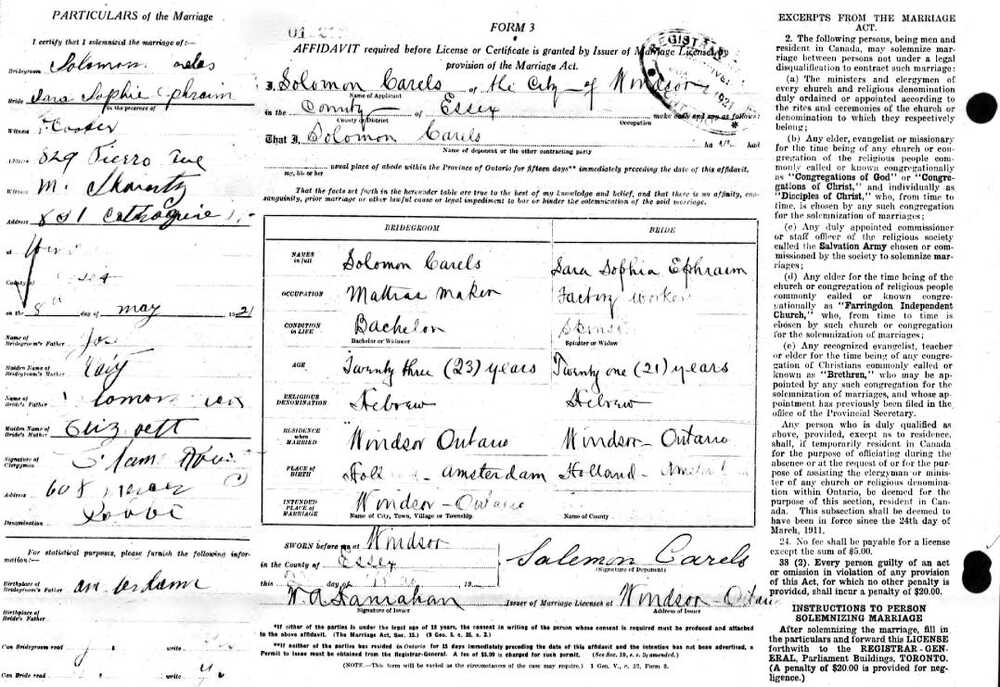 PARTICULARS of the Marriage
I certify that I solemnized the marriage of:—
Bridegroom Solomon
Bride Sara Sophie Ephraim
in the presence of
Witness Cooper
829 Pierro Ave
Witness M.
Address
at
County of
on the 8th day of may 1921
Name of
Bridegroom's Father
Maiden Name of
Bridegroom's Mother
Name of
Bride's Father
Maiden Name of
Bride's Mother
Signature of
Clergyman
Address 608
Denomination
For statistical purposes, please furnish the following infor-
mation:—
Birthplace of
Bride's Father
Birthplace of
Can Bride read y write
Can Bridegroom read y write y
FORM 3
AFFIDAVIT required before License or Certificate is granted by Issuer of Marriage Licenses by
provision of the Marriage Act.
I, Solomon Carels of the City of Windsor
Name of Applicant
in the County of Essex make oath and say as follows:
County or District Occupation
That I Solomon Carels ha had
Name of deponent or the other contracting party
my, his or her usual place of abode within the Province of Ontario for fifteen days** immediately preceding the date of this affidavit.
That the facts set forth in the hereunder table are true to the best of my knowledge and belief, and that there is no affinity, con-
sanguinity, prior marriage or other lawful cause or legal impediment to bar or hinder the solemnization of the said marriage.
BRIDEGROOM BRIDE
NAMES in full Solomon Carels Sara Sophia Ephraim
OCCUPATION Mattras maken Factory worker
CONDITION IN LIFE Bachelor
Bachelor or Widower Spinster or Widow
AGE Twenty three (23) years Twenty one (21) years
RELIGIOUS DENOMINATION Hebrew Hebrew
RESIDENCE when MARRIED Windsor Ontario Windsor - Ontario
PLACE OF BIRTH Holl - amsterdam Holland -
INTENDED PLACE OF MARRIAGE Windsor - Ontario
Name of City, Town, Village or Township Name of County
SWORN before me at Windsor
in the County of Essex Solemon Carels
(Signature of Deponent)
this day of 19
W. A. Hanrahan Issuer of Marriage Licenses at Windsor - Ontario
Signature of Issuer Address of Issuer
*If either of the parties is under the legal age of 18 years, the consent in writing of the person whose consent is required must be produced and attached
to the above affidavit. (The Marriage Act, Sec. 15.) (9 Geo. 5. c. 35, s. 2.)
**If neither of the parties has resided in Ontario for 15 days immediately preceding the date of this affidavit and the intention has not been advertised, a
Permit to issue must be obtained from the Registrar-General. A fee of $5.00 is charged for such permit. (See Sec. 19, s. s. 3; amended.)
(NOTE.—This form will be varied as the circumstances of the case may require.) 1 Geo. V., c. 32, Form 3.
EXCERPTS FROM THE MARRIAGE
ACT.
2. The following persons, being men and
resident in Canada, may solemnize mar-
riage between persons not under a legal
disqualification to contract such marriage:
(a) The ministers and clergymen of
every church and religious denomination
duly ordained or appointed according to
the rites and ceremonies of the church or
denomination to which they respectively
belong;
(b) Any elder, evangelist or missionary
for the time being of any church or con-
gregation of the religious people com-
monly called or known congregationally
as "Congregations of God" or "Congre-
gations of Christ," and individually as
"Disciples of Christ," who, from time to
time, is chosen by any such congregation
for the solemnization of marriages;
(c) Any duly appointed commissioner
or staff officer of the religious society
called the Salvation Army chosen or com-
missioned by the society to solemnize mar-
riages;
(d) Any elder for the time being of the
church or congregation of religious people
commonly called or known congre-
gationally as "Farringdon Independent
Church," who, from time to time is
chosen by any such church or congregation
for the solemnization of marriages;
(e) Any recognized evangelist, teacher
or elder for the time being of any congre-
gation of Christians commonly called or
known as "Brethren," who may be ap-
pointed by any such congregation for the
solemnization of marriages, and whose ap-
pointment has previously been filed in the
office of the Provincial Secretary.
Any person who is duly qualified as
above, provided, except as to residence,
shall, if temporarily resident in Canada
for the purpose of officiating during the
absence or at the request of or for the pur-
pose of assisting the clergyman or minis-
ter of any church or religious denomina-
tion within Ontario, be deemed for the
purpose of this section, resident in Can-
ada. This subsection shall be deemed to
have been in force since the 24th day of
March, 1911.
24. No fee shall be payable for a license
except the sum of $5.00.
38 (2). Every person guilty of an act
or omission in violation of any provision
of this Act, for which no other penalty is
provided, shall incur a penalty of $20.00.
INSTRUCTIONS TO PERSON
SOLEMNIZING MARRIAGE
After solemnizing the marriage, fill in
the particulars and forward this LICENSE
forthwith to the REGISTRAR-GEN-
ERAL, Parliament Buildings, TORONTO.
(A penalty of $20.00 is provided for neg-
ligence.)